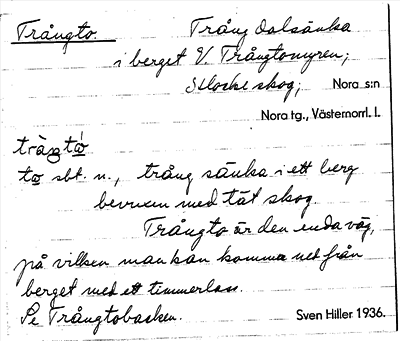 Trångto Trång dalsänka
i berget V. Trångtomyren;
Stocke skog; Nora s:n
Nora tg., Västernorrl. l.
tràŋtó
to sbt. n., trång sänka i ett berg
bevuxen med tät skog.
Trångto är den enda väg,
på vilken man kan komma ned från
berget med ett timmerlass.
Se Trångtobacken.
Sven Hiller 1936.